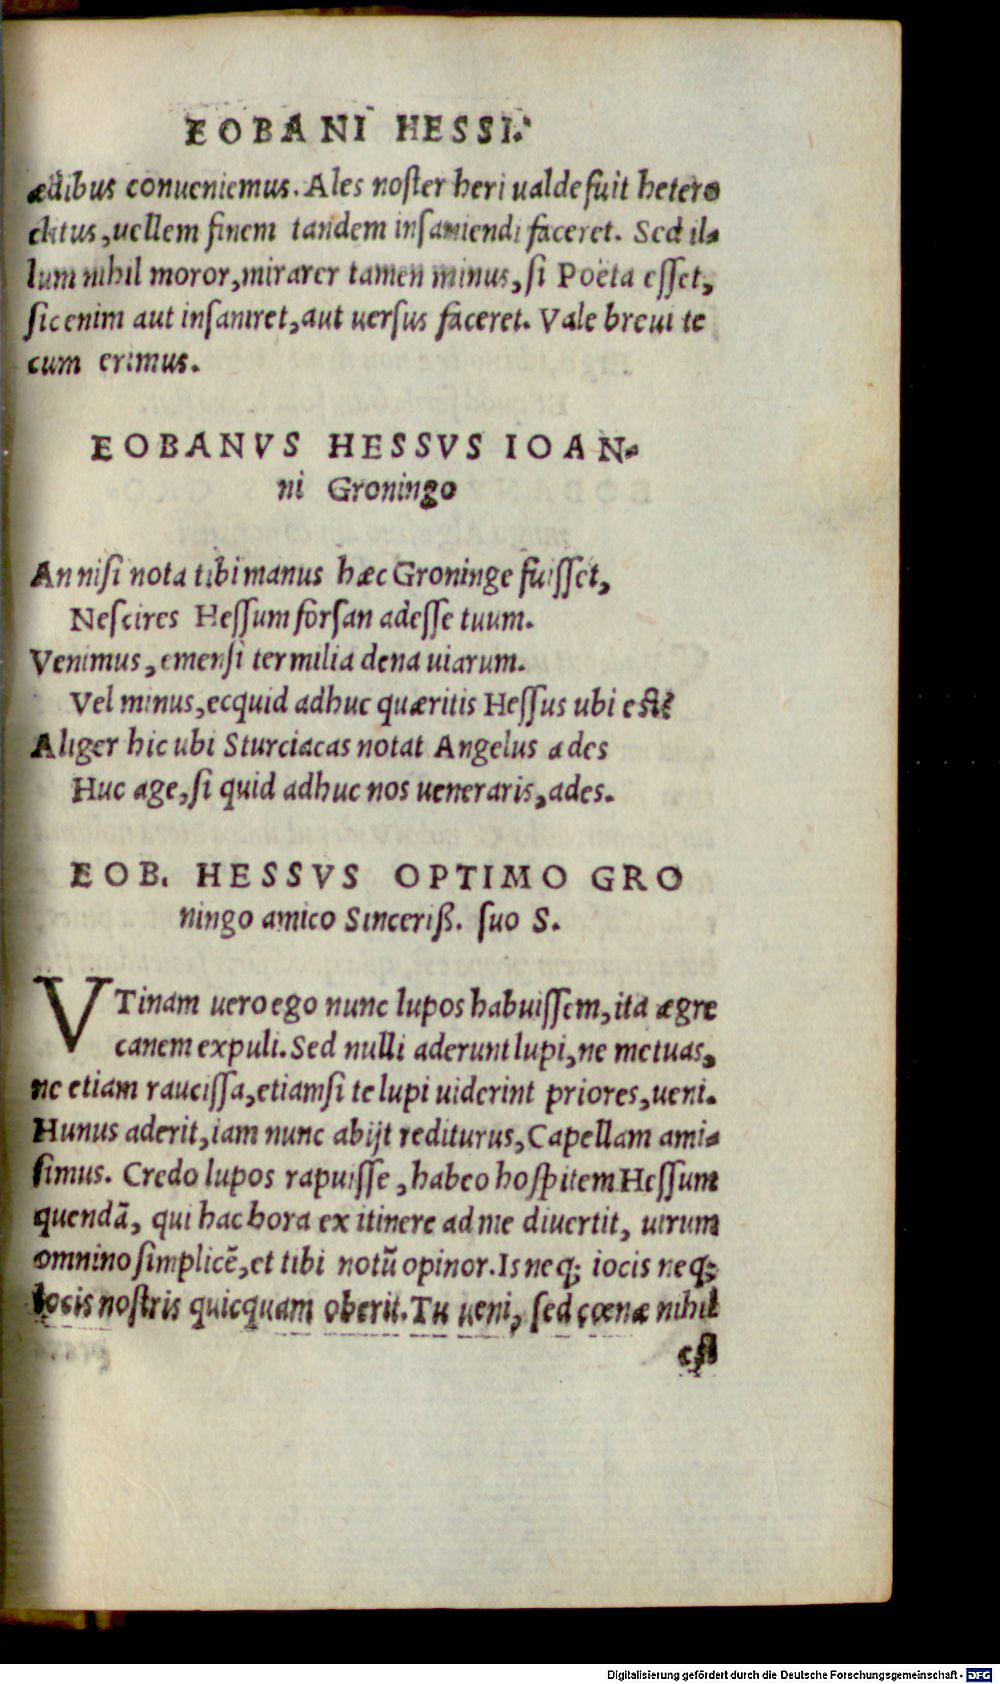 EOBANI HESSI.
ædibus conueniemus. Ales noster heri ualde fuit hetero
clitus, uellem finem tandem insaniendi faceret. Sed il-
lum nihil moror, mirarer tamen minus, si Poëta esset,
sic enim aut insaniret, aut uersus faceret. Vale breui te
cum erimus.
EOBANVS HESSVS IOAN-
ni Groningo
An nisi nota tibi manus hæc Groninge fuisset,
Nescires Hessum forsan adesse tuum.
Venimus, emensi ter milia dena uiarum.
Vel minus, ecquid adhuc quæritis Hessus ubi est?
Aliger hic ubi Sturciacas notat Angelus ædes
Huc age, si quid adhuc nos ueneraris, ades.
EOB. HESSVS OPTIMO GRO
ningo amico Sinceriß. suo S.
VTinam uero ego nunc lupos habuissem, ita ægre
canem expuli. Sed nulli aderunt lupi, ne metuas,
ne etiam raucissa, etiamsi te lupi uiderint priores, ueni.
Hunus aderit, iam nunc abijt rediturus, Capellam ami-
simus. Credo lupos rapuisse, habeo hospitem Hessum
quendã, qui hac hora ex itinere ad me diuertit, uirum
omnino simplicẽ, et tibi notũ opinor. Is neq; iocis neq;
locis nostris quicquam oberit. Tu ueni, sed cœnæ nihil
est
Digitalisierung gefördert durch die Deutsche Forschungsgemeinschaft - DFG